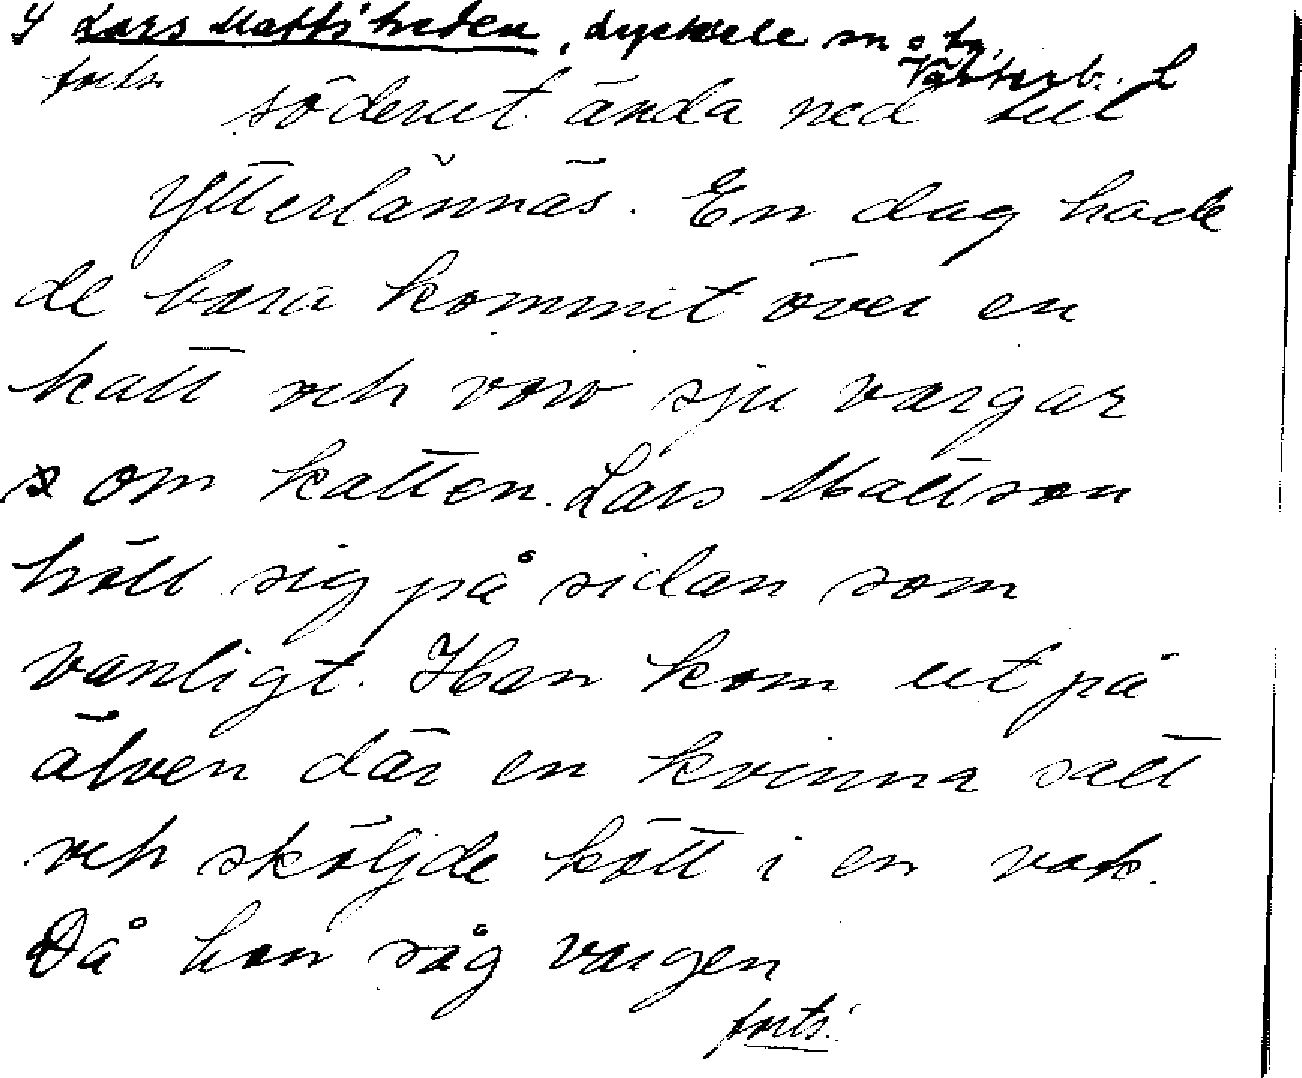 Lars Mattsheden, Lycksele sn o tg.
Västerb. L
forts.
söderut ända ned till
Ytterlännäs. En dag hade
de bara kommit över en
katt och voro sju vargar
om katten. Lars Mattson
höll sig på sidan som
vanligt. Han kom ut på
älven där en kvinna satt
och sköljde kött i en vak.
Då han såg vargen
forts.